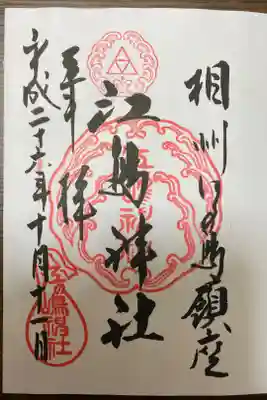 相州江の島鎮座
江島神社
奉拝
平成二十六年十月十一日
江島神社